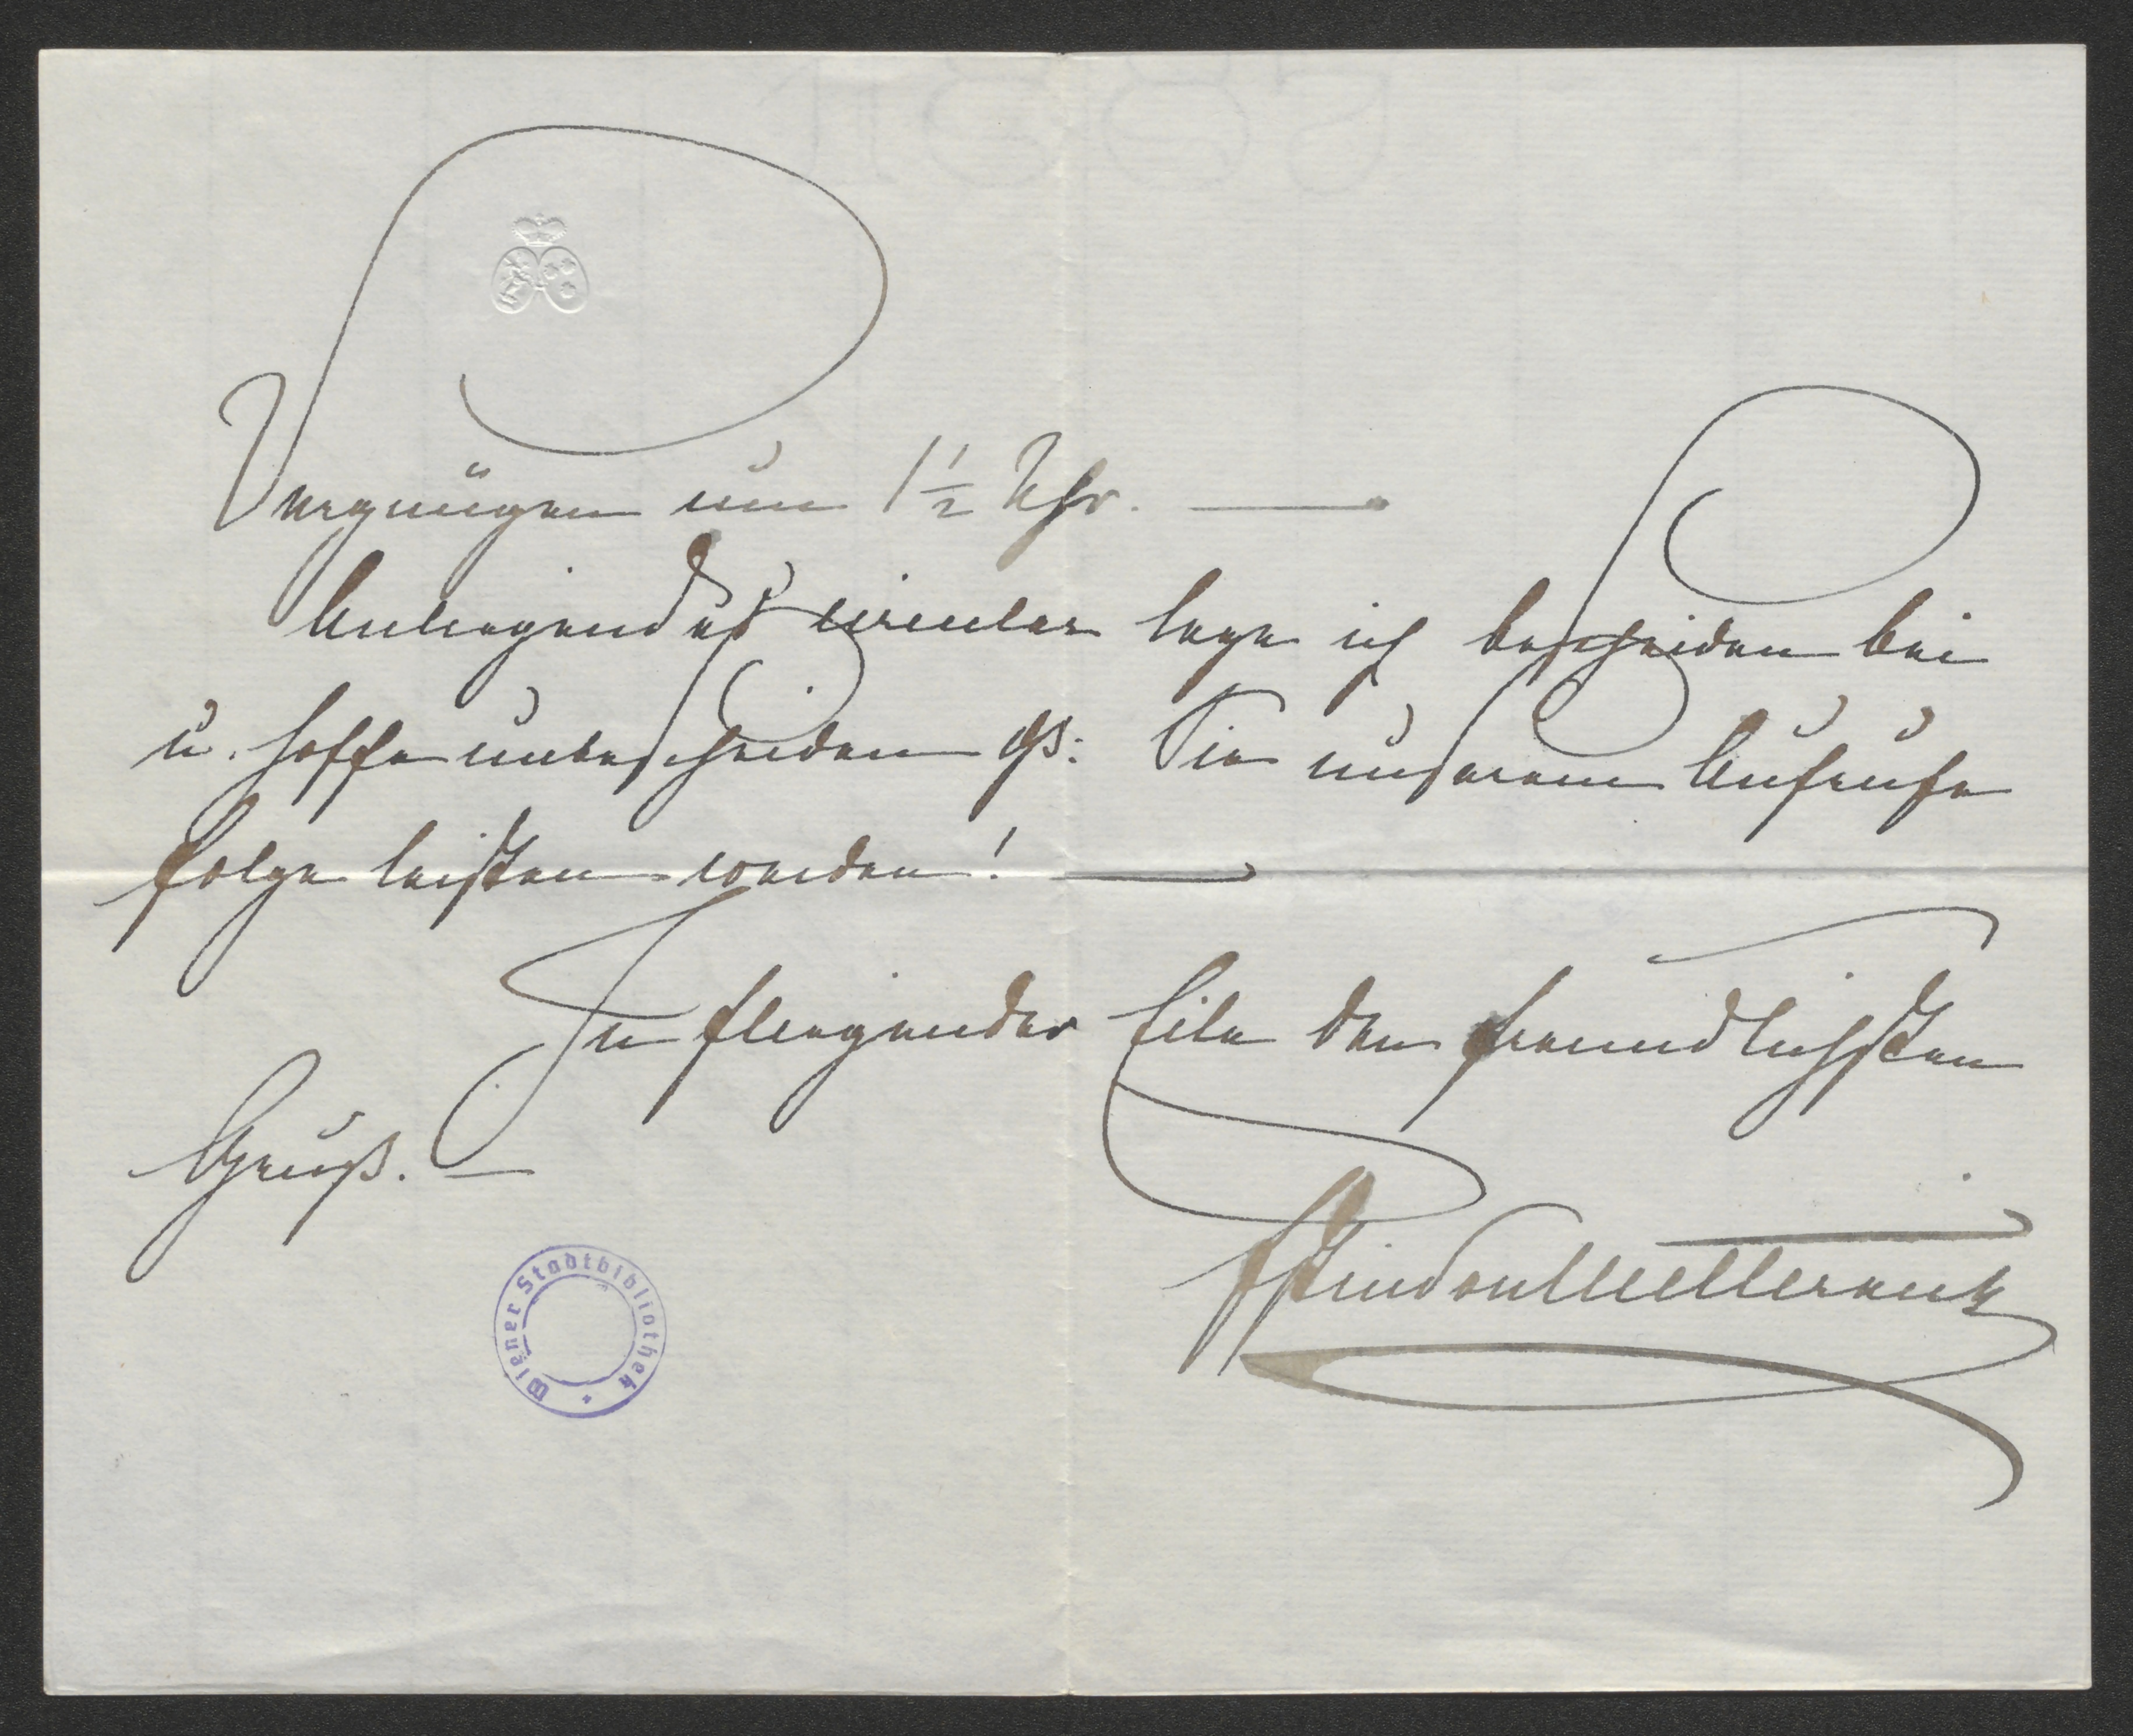 Vergnügen um 1½ Uhr. —
Anliegendes Circular lege ich bescheiden bei
u. hoffe unbescheiden dß: Sie unserem Aufrufe
Folge leisten werden! —
In fliegender Eile den freundlichsten
Gruß. —
Metternich
Wiener Stadtbibliothek